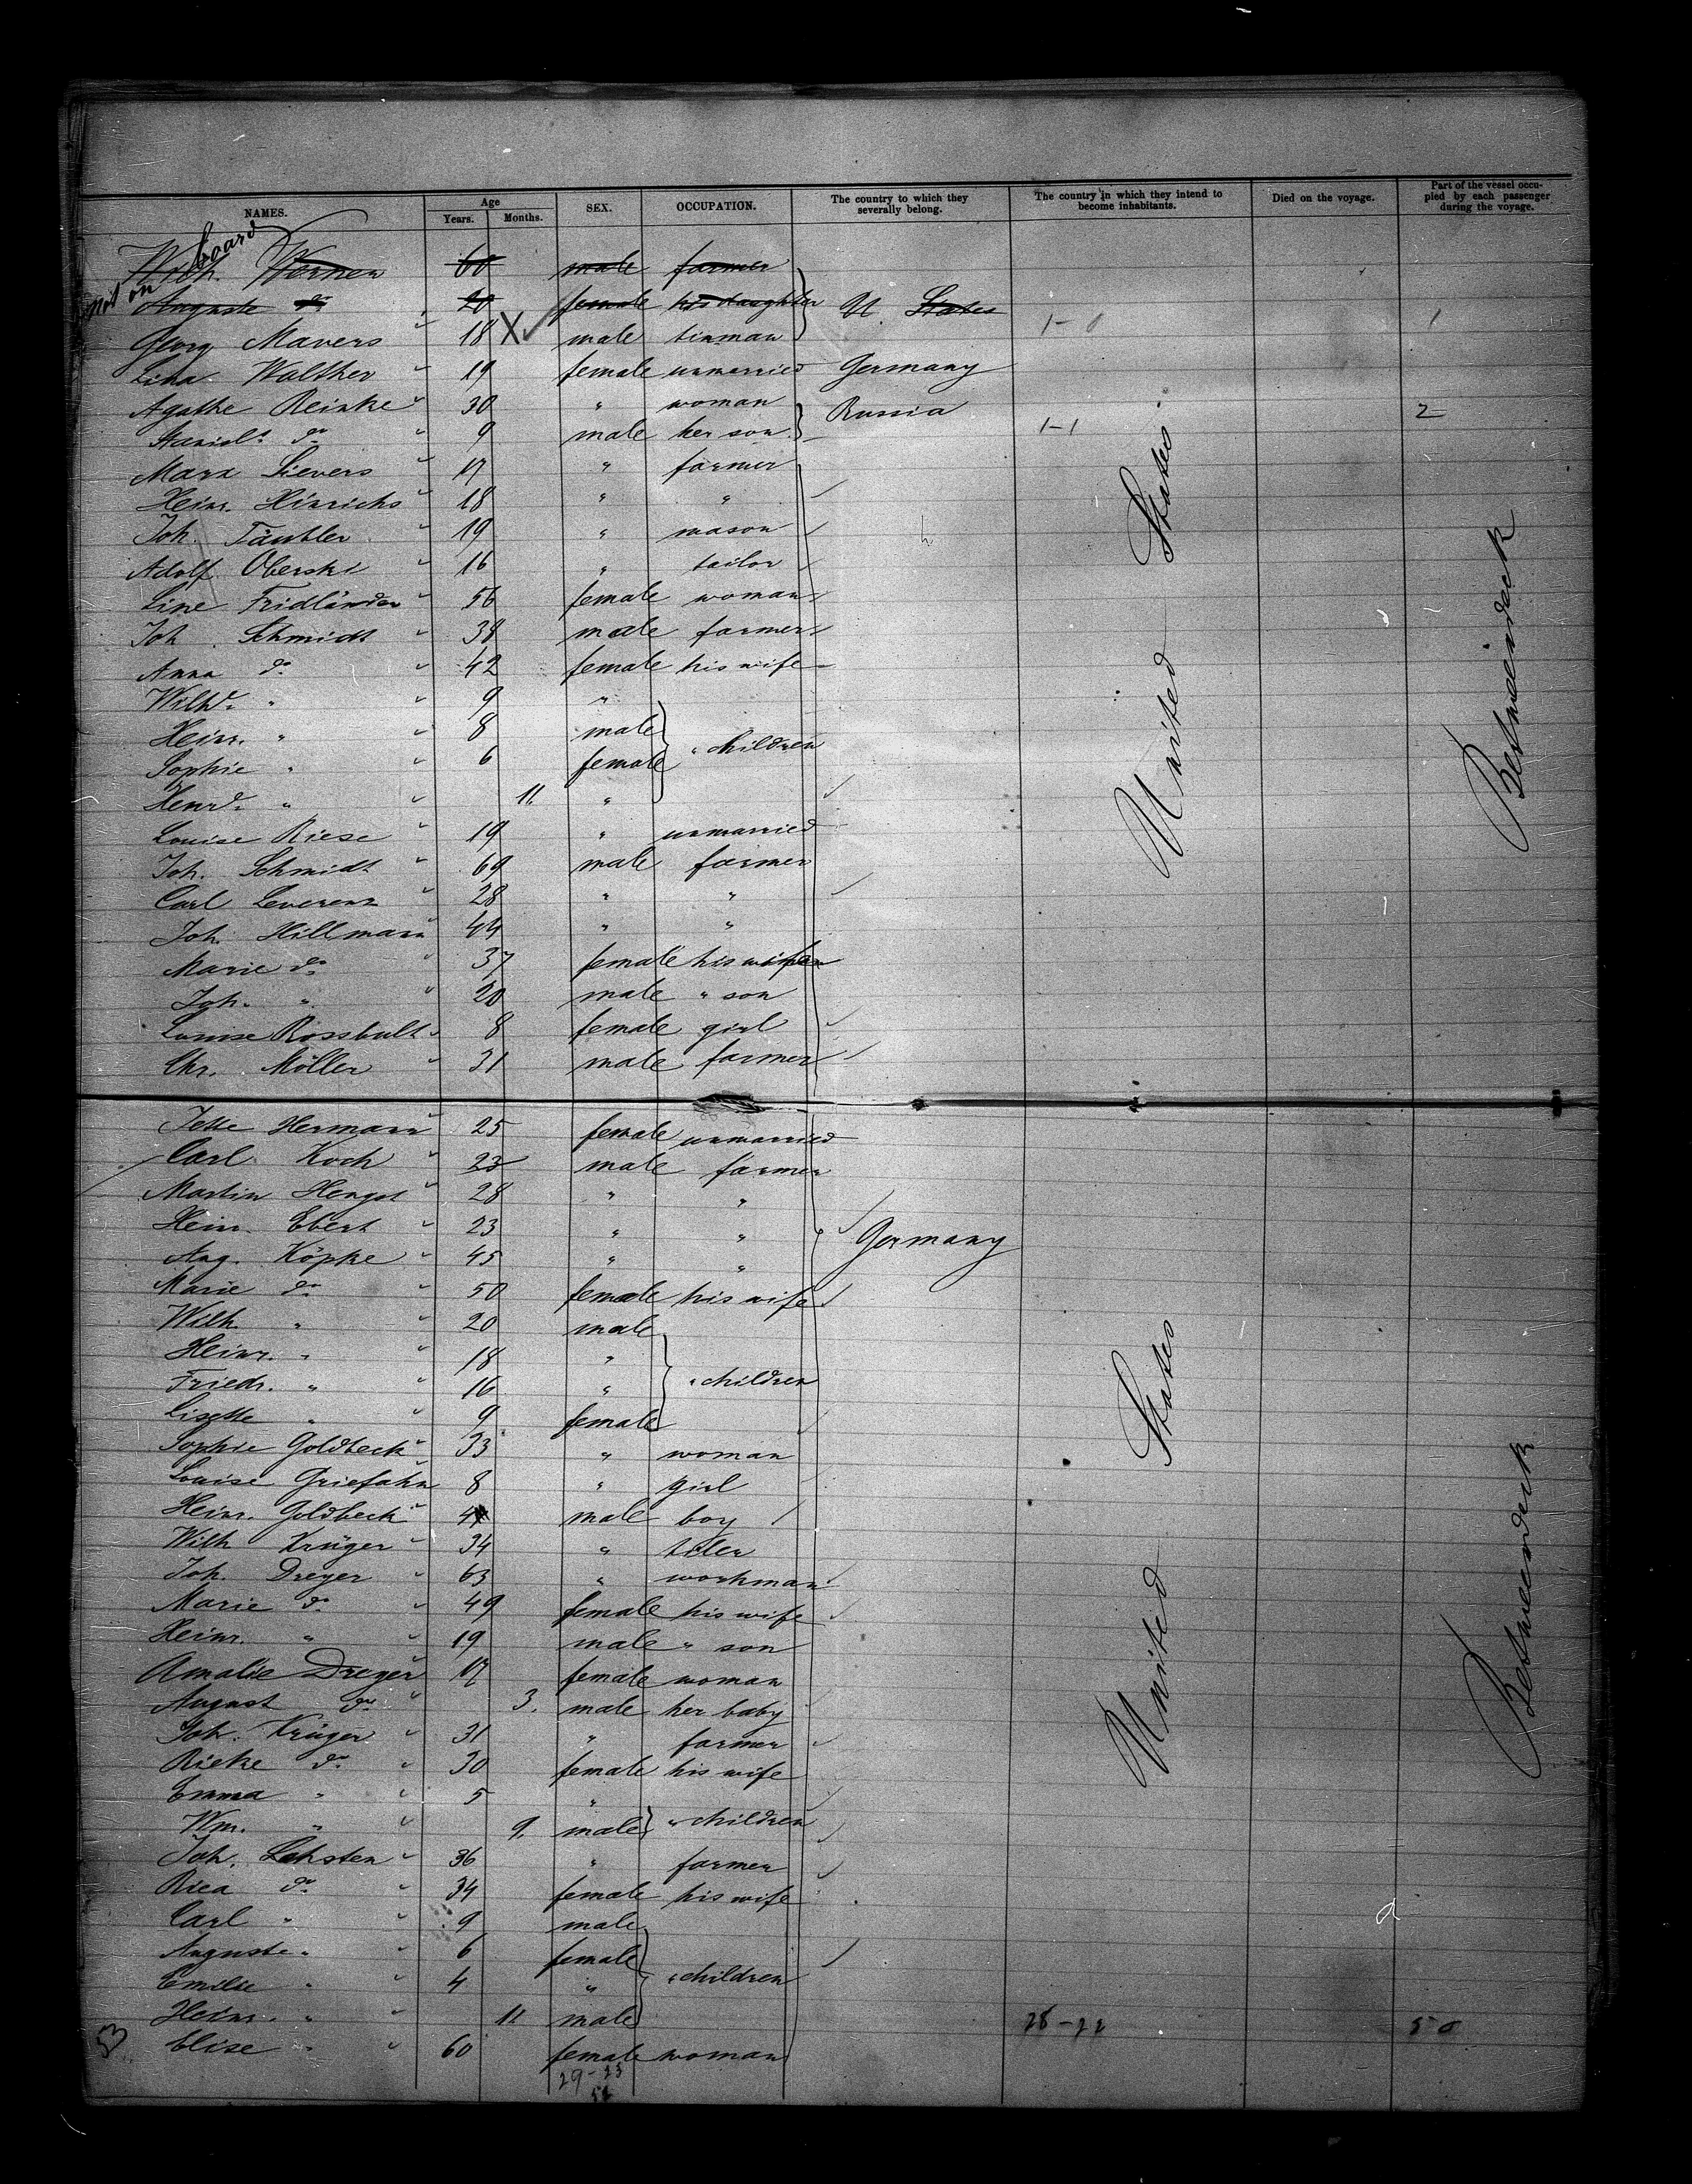 NAMES. Age Years. Months. SEX. OCCUPATION. The country to which they severally belong. The country in which they intend to become inhabitants. Died on the voyage. Part of the vessel occupied by each passenger during the voyage.
not on board
Werner 60 male farmer
Auguste do 20 female his daughter U States
Georg Mavers 18 X male tinman 1-0 1
Lina Walther 19 female unmarried Germany
Agathe Reinke 30 " woman Russia 2
do 9 male her son 1-1
Marx Sievers 17 " farmer
Heinr. Hinrichs 18 " "
Joh. Täubler 19 " mason
Adolf Oberski 16 " tailor
Line Fridländer 56 female woman
Joh. Schmidt 38 male farmer
Anna do 42 female his wife
Wilhe. " 9 "
Heinr. " 8 male
Sophie " 6 female " children
Henre. " 11 "
Louise Riese 19 " unmarried
Joh. Schmidt 69 male farmer
Carl Leverenz 28 " "
Joh. Hillmann 44 " "
Marie do 37 female his wife
Joh. " 20 male " son
Louise Rossbult 8 female girl
Chr. Möller 31 male farmer
Jette Hermann 25 female unmarried
Carl Koch 23 male farmer
Martin Hengst 28 " "
Heinr. Ebert 23 " " Germany
Aug. Köpke 45 " "
Marie do 50 female his wife
Wilh. " 20 male
Heinr. " 18 "
Friedr. " 16 " " children
Lisette " 9 female
Sophie Goldbeck 33 " woman
Louise Griefahn 8 " girl
Heinr. Goldbeck 4 male boy
Wilh Krüger 34 " tiler
Joh. Dreyer 63 " workman
Marie do 49 female his wife
Heinr. " 19 male " son
Amalie Dreyer 17 female woman
August do 3. male her baby
Joh. Krüger 31 " farmer
Rieke do 30 female his wife
Emma " 5 "
Wm. " 9. male " children
Joh. Lehsten 36 " farmer
Rica do 34 female his wife
Carl " 9 male
Auguste " 6 female
Emilie " 4 " " children
Heinr. " 11 male 28-22 50
Elise " 60 female woman
53
29-23
52
United States
Betweendeck
United States
Betweendeck